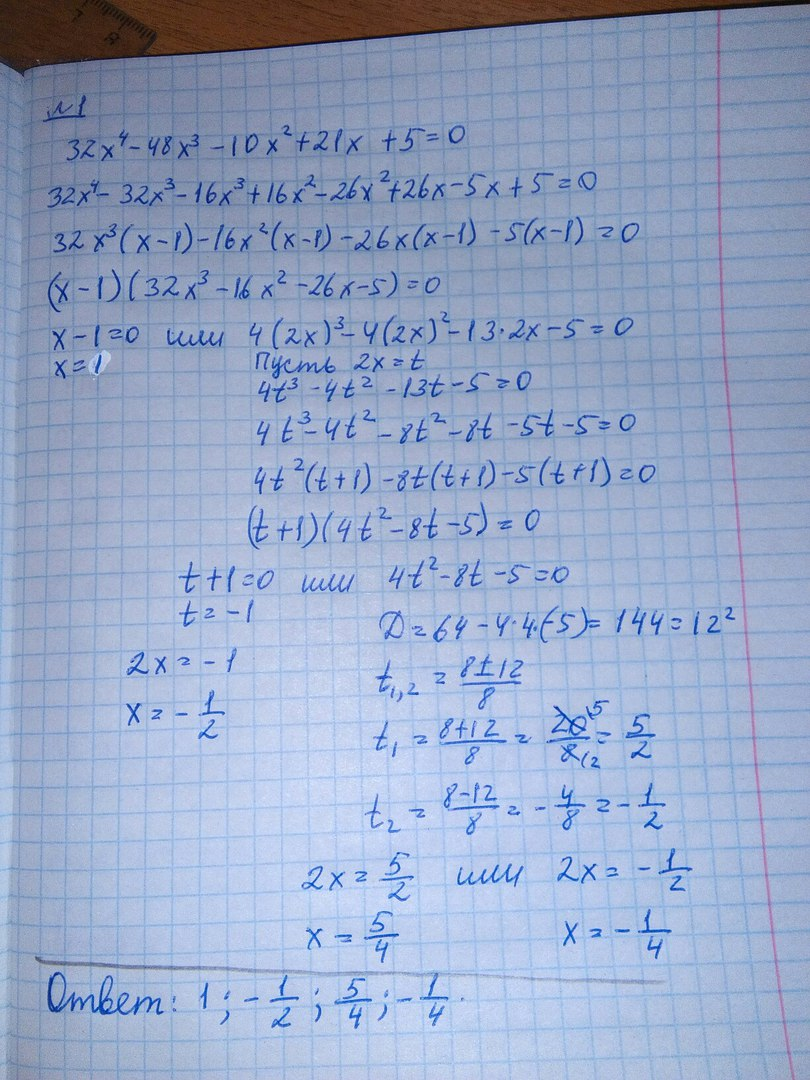 №1
32x⁴ - 48x³ - 10x² + 21x + 5 = 0
32x⁴ - 32x³ - 16x³ + 16x² - 26x² + 26x - 5x + 5 = 0
32x³(x-1) - 16x²(x-1) - 26x(x-1) - 5(x-1) = 0
(x-1)(32x³ - 16x² - 26x - 5) = 0
x - 1 = 0 или 4(2x)³ - 4(2x)² - 13·2x - 5 = 0
x = 1 Пусть 2x = t
4t³ - 4t² - 13t - 5 = 0
4t³ - 4t² - 8t² - 8t - 5t - 5 = 0
4t²(t+1) - 8t(t+1) - 5(t+1) = 0
(t+1)(4t² - 8t - 5) = 0
t + 1 = 0 или 4t² - 8t - 5 = 0
t = -1
D = 64 - 4·4·(-5) = 144 = 12²
2x = -1
t₁,₂ = (8±12)/8
x = -1/2
t₁ = (8+12)/8 = 20 5/8 2 = 5/2
t₂ = (8-12)/8 = -4/8 = -1/2
2x = 5/2 или 2x = -1/2
x = 5/4 x = -1/4
Ответ: 1; -1/2; 5/4; -1/4.